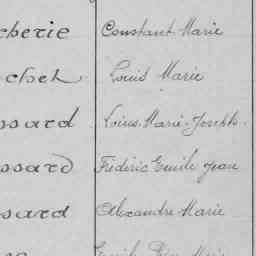 cherie Constant Marie
chet Louis Marie
ssard Louis Marie Joseph
ssard Frédéric Emile Jean
sard Alexandre Marie
Emile Marie